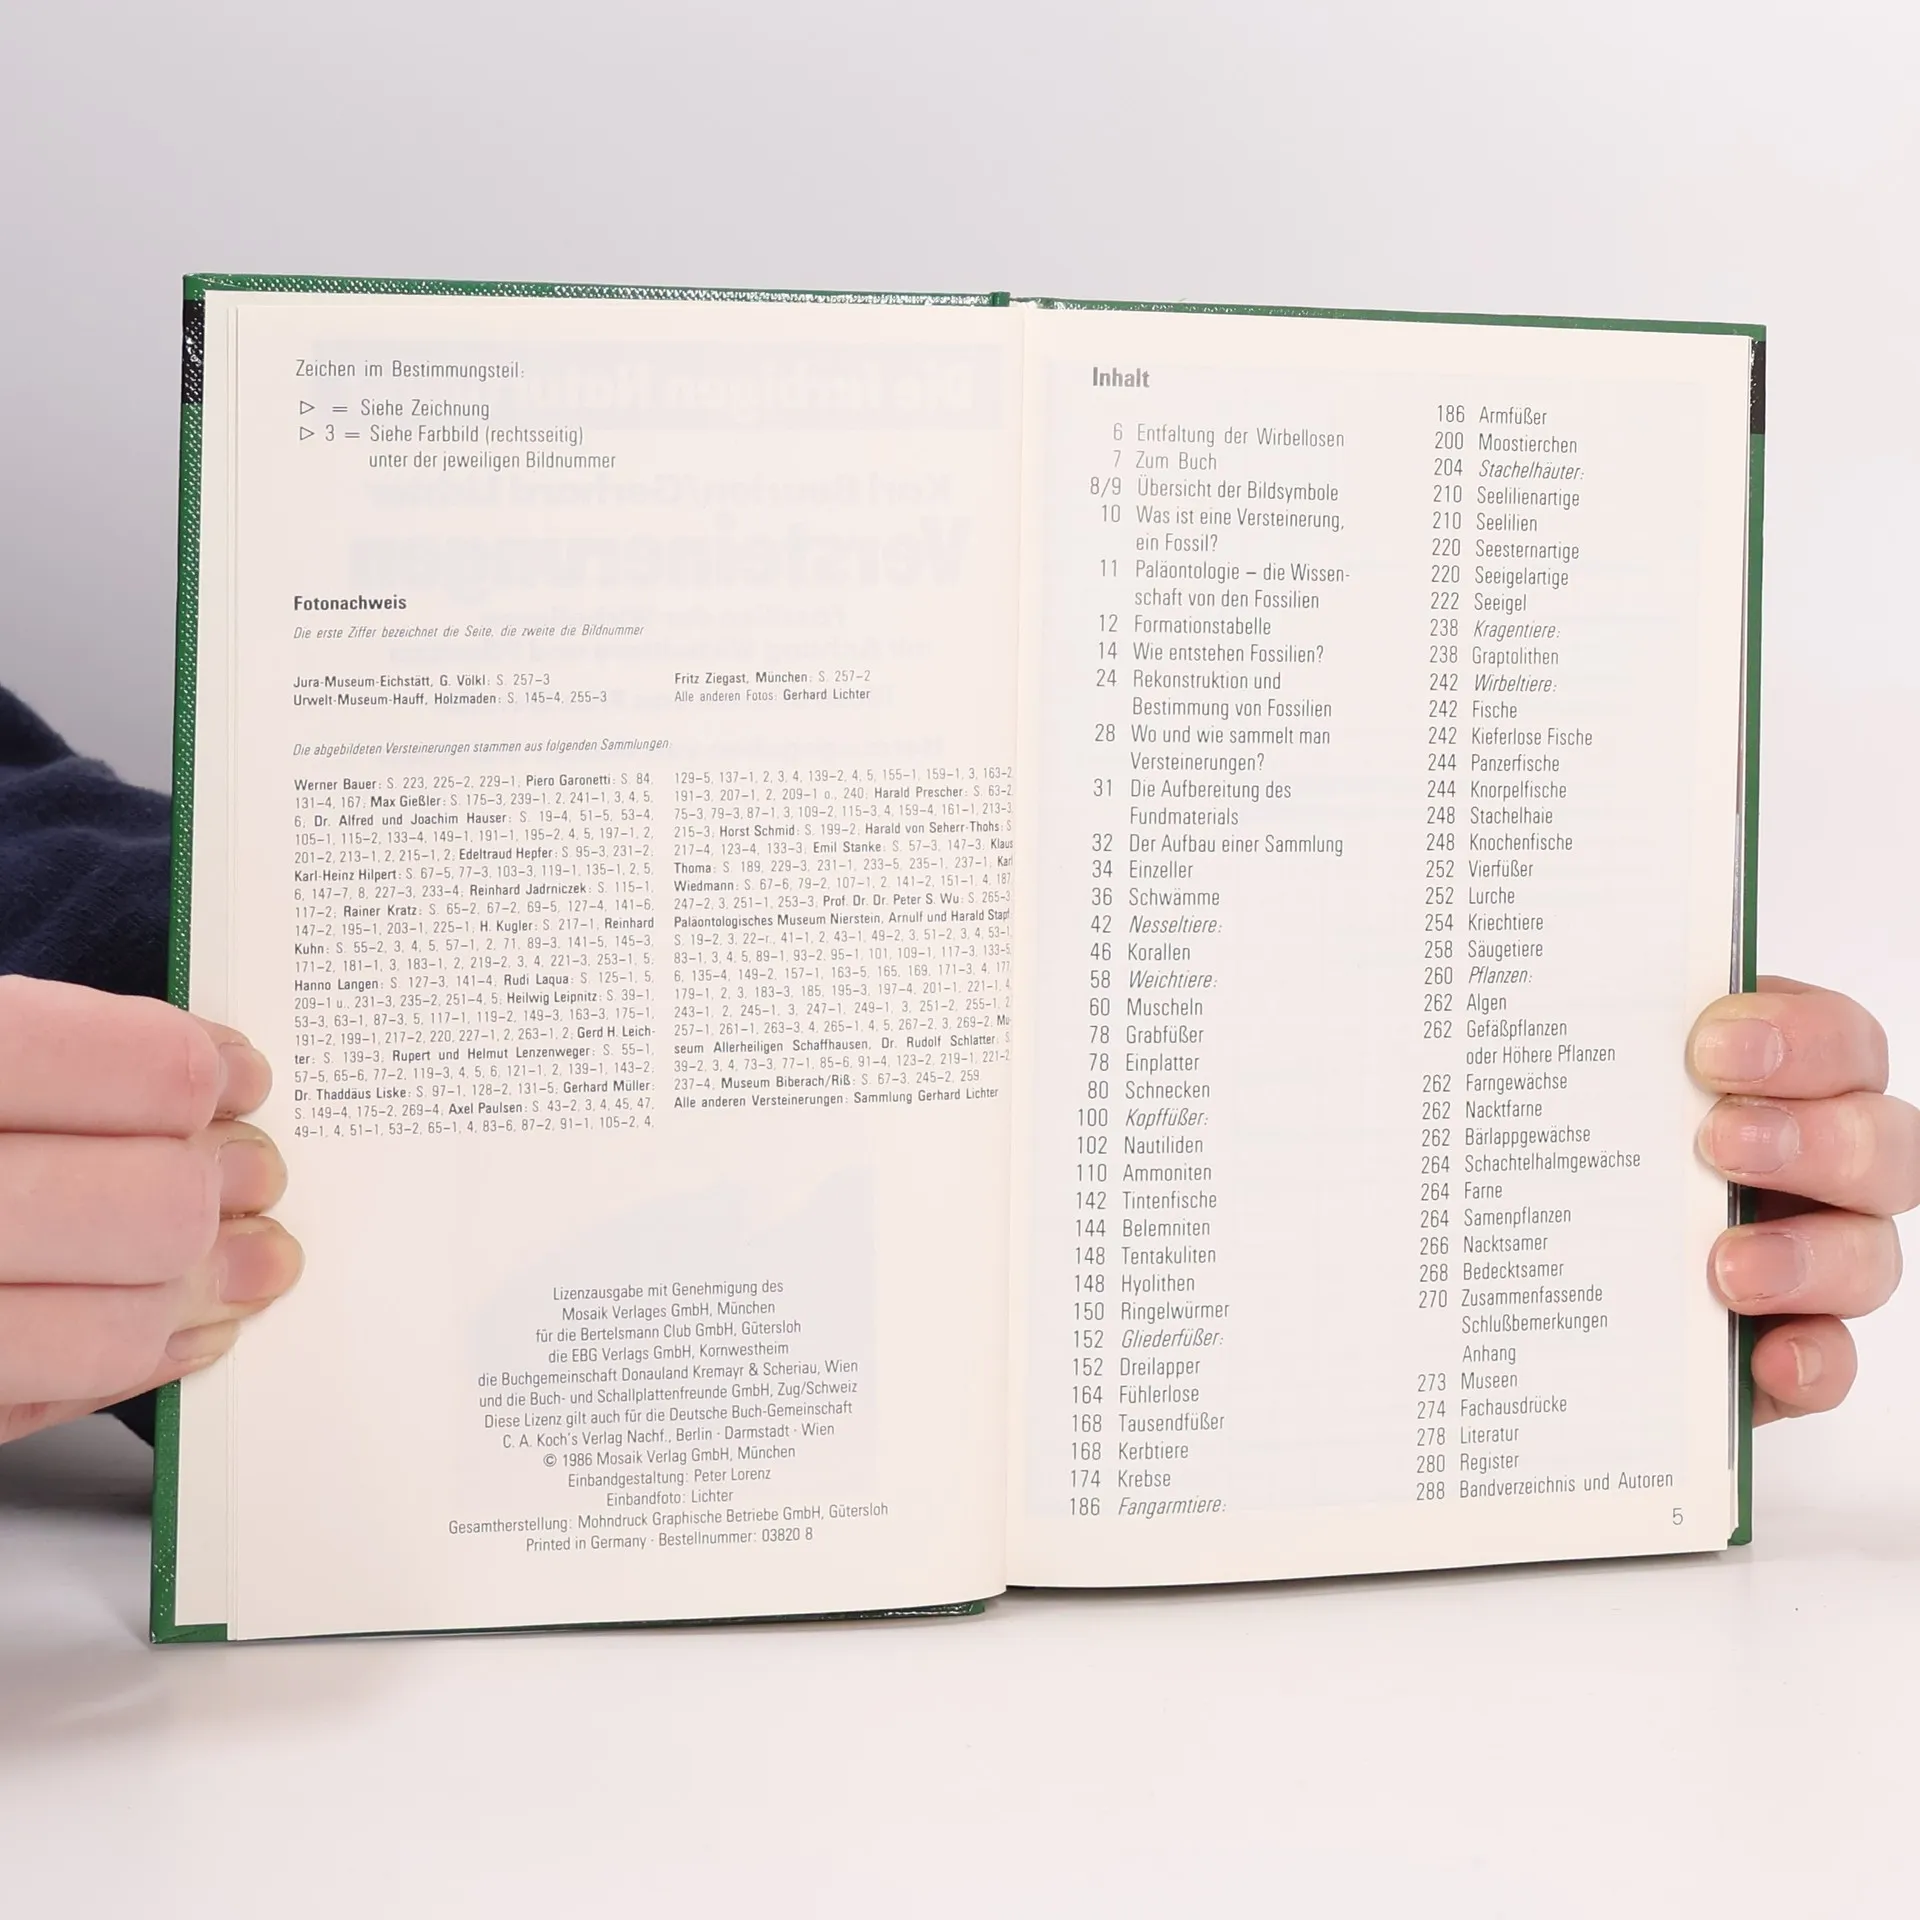 Zeichen im Bestimmungsteil:
▷ = Siehe Zeichnung
▷ 3 = Siehe Farbbild (rechtsseitig)
unter der jeweiligen Bildnummer
Fotonachweis
Die erste Ziffer bezeichnet die Seite, die zweite die Bildnummer
Jura-Museum-Eichstätt, G. Völkl: S. 257–3
Urwelt-Museum-Hauff, Holzmaden: S. 145–4, 255–3
Fritz Ziegast, München: S. 257–2
Alle anderen Fotos: Gerhard Lichter
Die abgebildeten Versteinerungen stammen aus folgenden Sammlungen:
Werner Bauer: S. 223, 225–2, 229–1; Piero Garonetti: S. 84,
131–4, 167; Max Gießler: S. 175–3, 239–1, 2, 241–1, 3, 4, 5,
6; Dr. Alfred und Joachim Hauser: S. 19–4, 51–5, 53–4,
105–1, 115–2, 133–4, 149–1, 191–1, 195–2, 4, 5, 197–1, 2,
201–2, 213–1, 2, 215–1, 2; Edeltraud Hepfer: S. 95–3, 231–2;
Karl-Heinz Hilpert: S. 67–5, 77–3, 103–3, 119–1, 135–1, 2, 5,
6, 147–7, 8, 227–3, 233–4; Reinhard Jadrniczek: S. 115–1,
117–2; Rainer Kratz: S. 65–2, 67–2, 69–5, 127–4, 141–6,
147–2, 195–1, 203–1, 225–1; H. Kugler: S. 217–1; Reinhard
Kuhn: S. 55–2, 3, 4, 5, 57–1, 2, 71, 89–3, 141–5, 145–3,
171–2, 181–1, 3, 183–1, 2, 219–2, 3, 4, 221–3, 253–1, 5;
Hanno Langen: S. 127–3, 141–4; Rudi Laqua: S. 125–1, 5,
209–1 u., 231–3, 235–2, 251–4, 5; Heilwig Leipnitz: S. 39–1,
53–3, 63–1, 87–3, 5, 117–1, 119–2, 149–3, 163–3, 175–1,
191–2, 199–1, 217–2, 220, 227–1, 2, 263–1, 2; Gerd H. Leich-
ter: S. 139–3; Rupert und Helmut Lenzenweger: S. 55–1,
57–5, 65–6, 77–2, 119–3, 4, 5, 6, 121–1, 2, 139–1, 143–2;
Dr. Thaddäus Liske: S. 97–1, 128–2, 131–5; Gerhard Müller:
S. 149–4, 175–2, 269–4; Axel Paulsen: S. 43–2, 3, 4, 45, 47,
49–1, 4, 51–1, 53–2, 65–1, 4, 83–6, 87–2, 91–1, 105–2, 4,
129–5, 137–1, 2, 3, 4, 139–2, 4, 5, 155–1, 159–1, 3, 163–2
191–3, 207–1, 2, 209–1 o., 240; Harald Prescher: S. 63–2
75–3, 79–3, 87–1, 3, 109–2, 115–3, 4, 159–4, 161–1, 213–3,
215–3; Horst Schmid: S. 199–2; Harald von Seherr-Thohs: S
217–4, 123–4, 133–3; Emil Stanke: S. 57–3, 147–3; Klaus
Thoma: S. 189, 229–3, 231–1, 233–5, 235–1, 237–1; Karl
Wiedmann: S. 67–6, 79–2, 107–1, 2, 141–2, 151–1, 4, 187,
247–2, 3, 251–1, 253–3; Prof. Dr. Dr. Peter S. Wu: S. 265–3
Paläontologisches Museum Nierstein, Arnulf und Harald Stapf
S. 19–2, 3, 22–r., 41–1, 2, 43–1, 49–2, 3, 51–2, 3, 4, 53–1,
83–1, 3, 4, 5, 89–1, 93–2, 95–1, 101, 109–1, 117–3, 133–5
6, 135–4, 149–2, 157–1, 163–5, 165, 169, 171–3, 4, 177
179–1, 2, 3, 183–3, 185, 195–3, 197–4, 201–1, 221–1, 4
243–1, 2, 245–1, 3, 247–1, 249–1, 3, 251–2, 255–1, 2
257–1, 261–1, 263–3, 4, 265–1, 4, 5, 267–2, 3, 269–2; Mu-
seum Allerheiligen Schaffhausen, Dr. Rudolf Schlatter: S
39–2, 3, 4, 73–3, 77–1, 85–6, 91–4, 123–2, 219–1, 221–2
237–4; Museum Biberach/Riß: S. 67–3, 245–2, 259
Alle anderen Versteinerungen: Sammlung Gerhard Lichter
Lizenzausgabe mit Genehmigung des
Mosaik Verlages GmbH, München
für die Bertelsmann Club GmbH, Gütersloh
die EBG Verlags GmbH, Kornwestheim
die Buchgemeinschaft Donauland Kremayr & Scheriau, Wien
und die Buch- und Schallplattenfreunde GmbH, Zug/Schweiz
Diese Lizenz gilt auch für die Deutsche Buch-Gemeinschaft
C. A. Koch's Verlag Nachf., Berlin · Darmstadt · Wien
© 1986 Mosaik Verlag GmbH, München
Einbandgestaltung: Peter Lorenz
Einbandfoto: Lichter
Gesamtherstellung: Mohndruck Graphische Betriebe GmbH, Gütersloh
Printed in Germany · Bestellnummer: 03820 8
Inhalt
6 Entfaltung der Wirbellosen
7 Zum Buch
8/9 Übersicht der Bildsymbole
10 Was ist eine Versteinerung,
ein Fossil?
11 Paläontologie – die Wissen-
schaft von den Fossilien
12 Formationstabelle
14 Wie entstehen Fossilien?
24 Rekonstruktion und
Bestimmung von Fossilien
28 Wo und wie sammelt man
Versteinerungen?
31 Die Aufbereitung des
Fundmaterials
32 Der Aufbau einer Sammlung
34 Einzeller
36 Schwämme
42 Nesseltiere:
46 Korallen
58 Weichtiere:
60 Muscheln
78 Grabfüßer
78 Einplatter
80 Schnecken
100 Kopffüßer:
102 Nautiliden
110 Ammoniten
142 Tintenfische
144 Belemniten
148 Tentakuliten
148 Hyolithen
150 Ringelwürmer
152 Gliederfüßer:
152 Dreilapper
164 Fühlerlose
168 Tausendfüßer
168 Kerbtiere
174 Krebse
186 Fangarmtiere:
186 Armfüßer
200 Moostierchen
204 Stachelhäuter:
210 Seelilienartige
210 Seelilien
220 Seesternartige
220 Seeigelartige
222 Seeigel
238 Kragentiere:
238 Graptolithen
242 Wirbeltiere:
242 Fische
242 Kieferlose Fische
244 Panzerfische
244 Knorpelfische
248 Stachelhaie
248 Knochenfische
252 Vierfüßer
252 Lurche
254 Kriechtiere
258 Säugetiere
260 Pflanzen:
262 Algen
262 Gefäßpflanzen
oder Höhere Pflanzen
262 Farngewächse
262 Nacktfarne
262 Bärlappgewächse
264 Schachtelhalmgewächse
264 Farne
264 Samenpflanzen
266 Nacktsamer
268 Bedecktsamer
270 Zusammenfassende
Schlußbemerkungen
Anhang
273 Museen
274 Fachausdrücke
278 Literatur
280 Register
288 Bandverzeichnis und Autoren
5